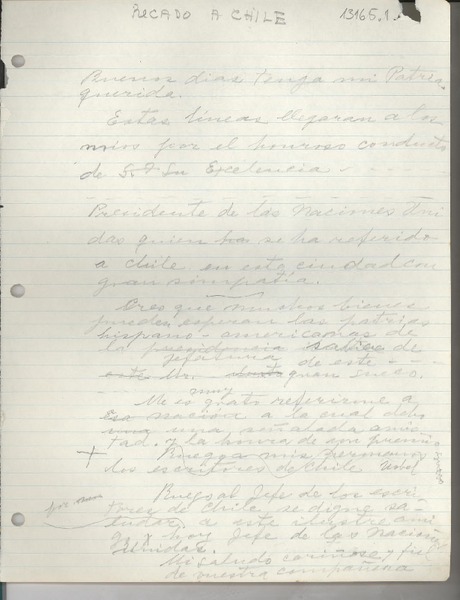 RECADO A CHILE 13165.1.
Buenos dias tenga mi Patria
querida.
Estas lineas llegaran a los
mios por el honroso conducto
de S. Su Excelencia
Presidente de las Naciones Uni
das quien se ha referido
a Chile en esta ciudad con
gran simpatia.
Creo que muchos bienes
pueden esperar las patrias
hispano-americanas de
la presidencia sabia de
jefatura de este
este Mr. gran sueco.
muy
Me es grato referirme a
esa nación a la cual debo
una una señalada amis
tad y la honra de un premio
+ Ruego a mis hermanos
los escritores de Chile
Ruego al Jefe de los escri-
por
tores de Chile se digne sa-
ludar a este ilustre ami
go y hoy Jefe de las Naciones
Unidas.
Mi saludo cariñoso y fiel
de vuestra compañera